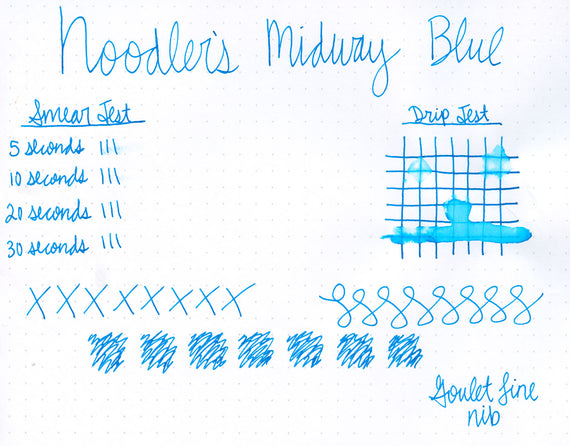 Noodler's Midway Blue
Smear Test
5 seconds III
10 seconds III
20 seconds III
30 seconds III
Drip Test
XXXXXXXX
Goulet fine
nib